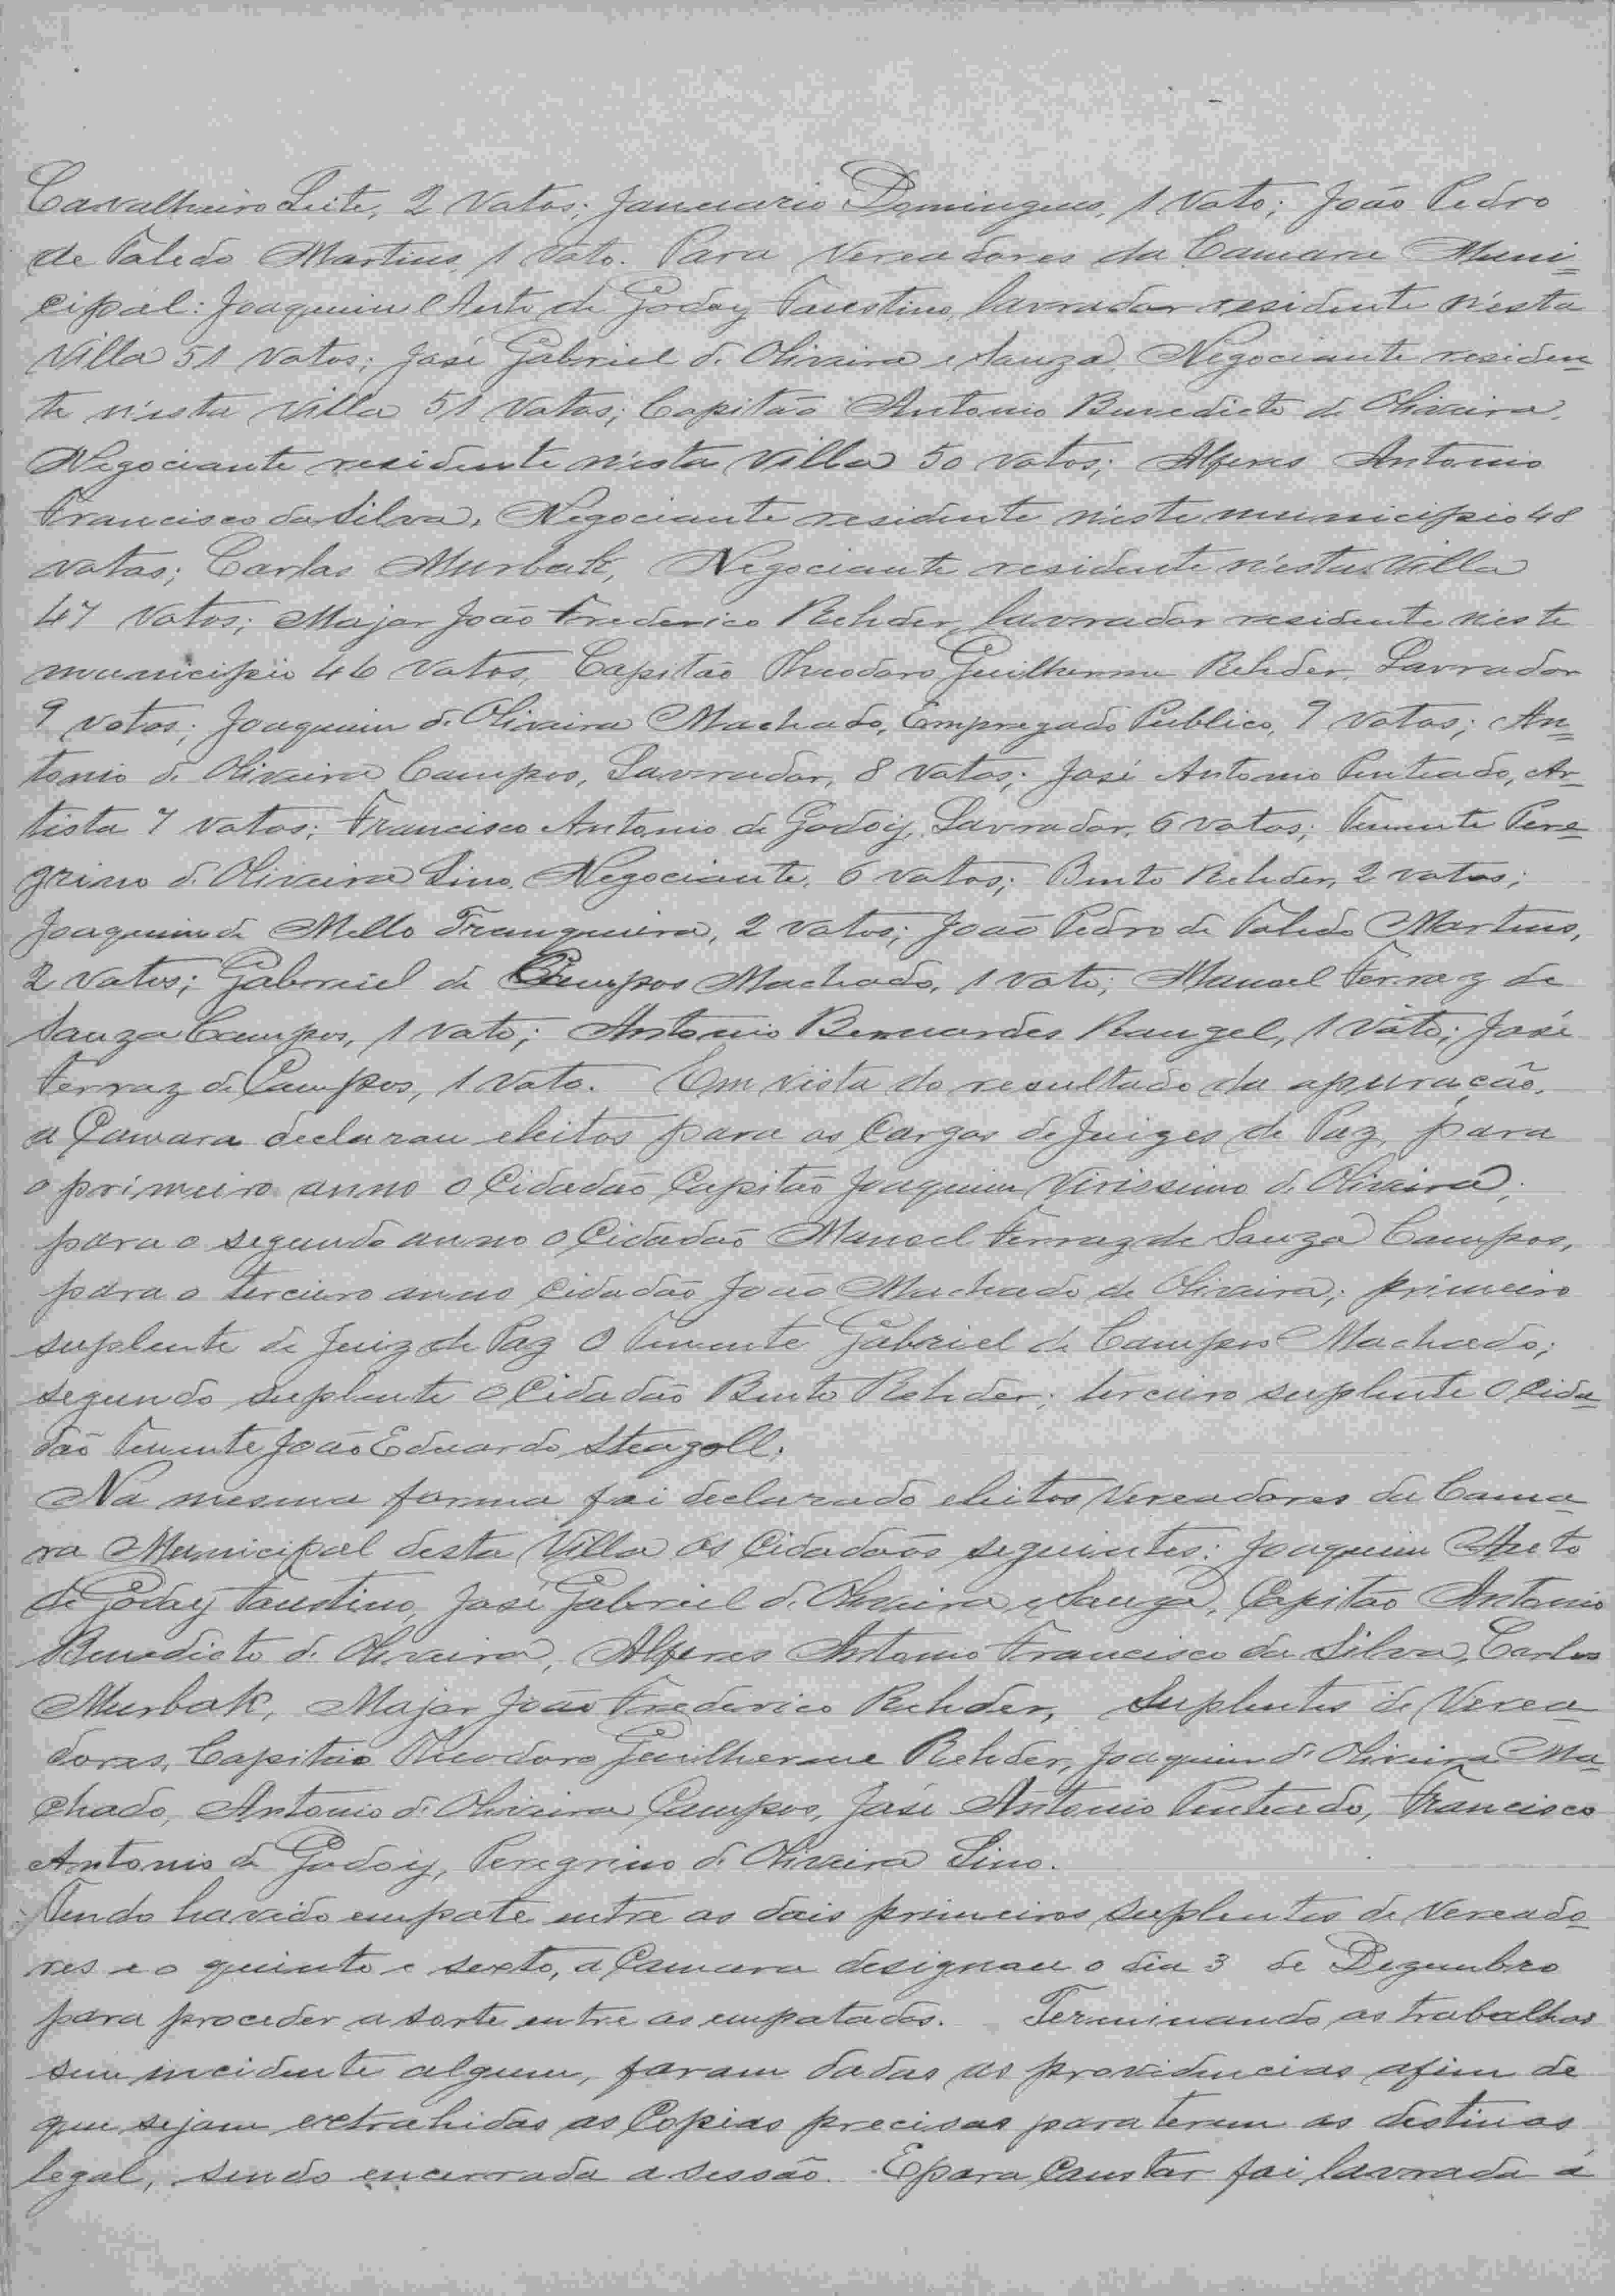 Cavalheiro Leite, 2 Votos; Januario Domingues, 1 Voto; João Pedro
de Toledo Martins, 1 Voto. Para Vereadores da Camara Muni=
cipal: Joaquim Aⁿᵗᵒ de Godoy Faustino, lavrador residente n'esta
Villa 51 Votos; José Gabriel d'Oliveira e Souza, Negociante residen=
te n'esta Villa 51 Votos; Capitão Antonio Benedicto de Oliveira,
Negociante residente n'esta Villa 50 votos; Alferes Antonio
Francisco da Silva, Negociante residente n'este municipio 48
votos; Carlos Murbak, Negociante residente n'esta Villa
47 Votos; Major João Frederico Rehder, lavrador residente n'este
municipio 46 Votos, Capitão Theodoro Guilherme Rehder, Lavrador
9 votos; Joaquim d'Oliveira Machado, Empregado Publico, 9 Votos; An=
tonio d'Oliveira Campos, Lavrador, 8 Votos; José Antonio Penteado, Ar=
tista 7 Votos; Francisco Antonio de Godoiy, Lavrador, 6 votos; Tenente Pere=
grino d'Oliveira Lino, Negociante, 6 Votos; Bento Rehder, 2 votos;
Joaquim de Mello Franqueira, 2 Votos; João Pedro de Toledo Martins,
2 Votos; Gabriel de Campos Machado, 1 voto; Manoel Ferraz de
Souza Campos, 1 Voto; Antonio Bernardes Rangel, 1 Voto; José
Ferraz de Campos, 1 Voto. Em vista do resultado da apuração,
a Camara declarou eleitos para os Cargos de Juizes de Paz, para
o primeiro anno o Cidadão Capitão Joaquim Virissimo d'Oliveira;
para o segundo anno o Cidadão Manoel Ferraz de Souza Campos,
para o terceiro anno Cidadão João Machado de Oliveira; primeiro
suplente de Juiz de Paz O Tenente Gabriel de Campos Machado;
segundo suplente o Cidadão Bento Rehder; terceiro suplente o Cida=
dão Tenente João Eduardo Steagoll.
Na mesma forma foi declarado eleitos Vereadores da Cama=
ra Municipal desta Villa os Cidadãos seguintes: Joaquim Aⁿᵗᵒ
de Godoy Faustino, José Gabriel d'Oliveira e Souza, Capitão Antonio
Benedicto d'Oliveira, Alferes Antonio Francisco da Silva, Carlos
Murbak, Major João Frederico Rehder, Suplentes de Verea=
dores, Capitão Theodoro Guilherme Rehder, Joaquim d'Oliveira Ma=
chado, Antonio d'Oliveira Campos, José Antonio Penteado, Francisco
Antonio de Godoiy, Peregrino d'Oliveira Lino.
Tendo havido empate entre os dois primeiros suplentes de Vereado=
res e o quinto e sexto, a Camara designou o dia 3 de Dezembro
para proceder a sorte entre os empatados. Terminando os trabalhos
sem incidente algum, foram dadas as providencias afim de
que sejam extrahidas as Copias precisas para terem os destinos
legal, sendo encerrada a sessão. E para Constar foi lavrada á